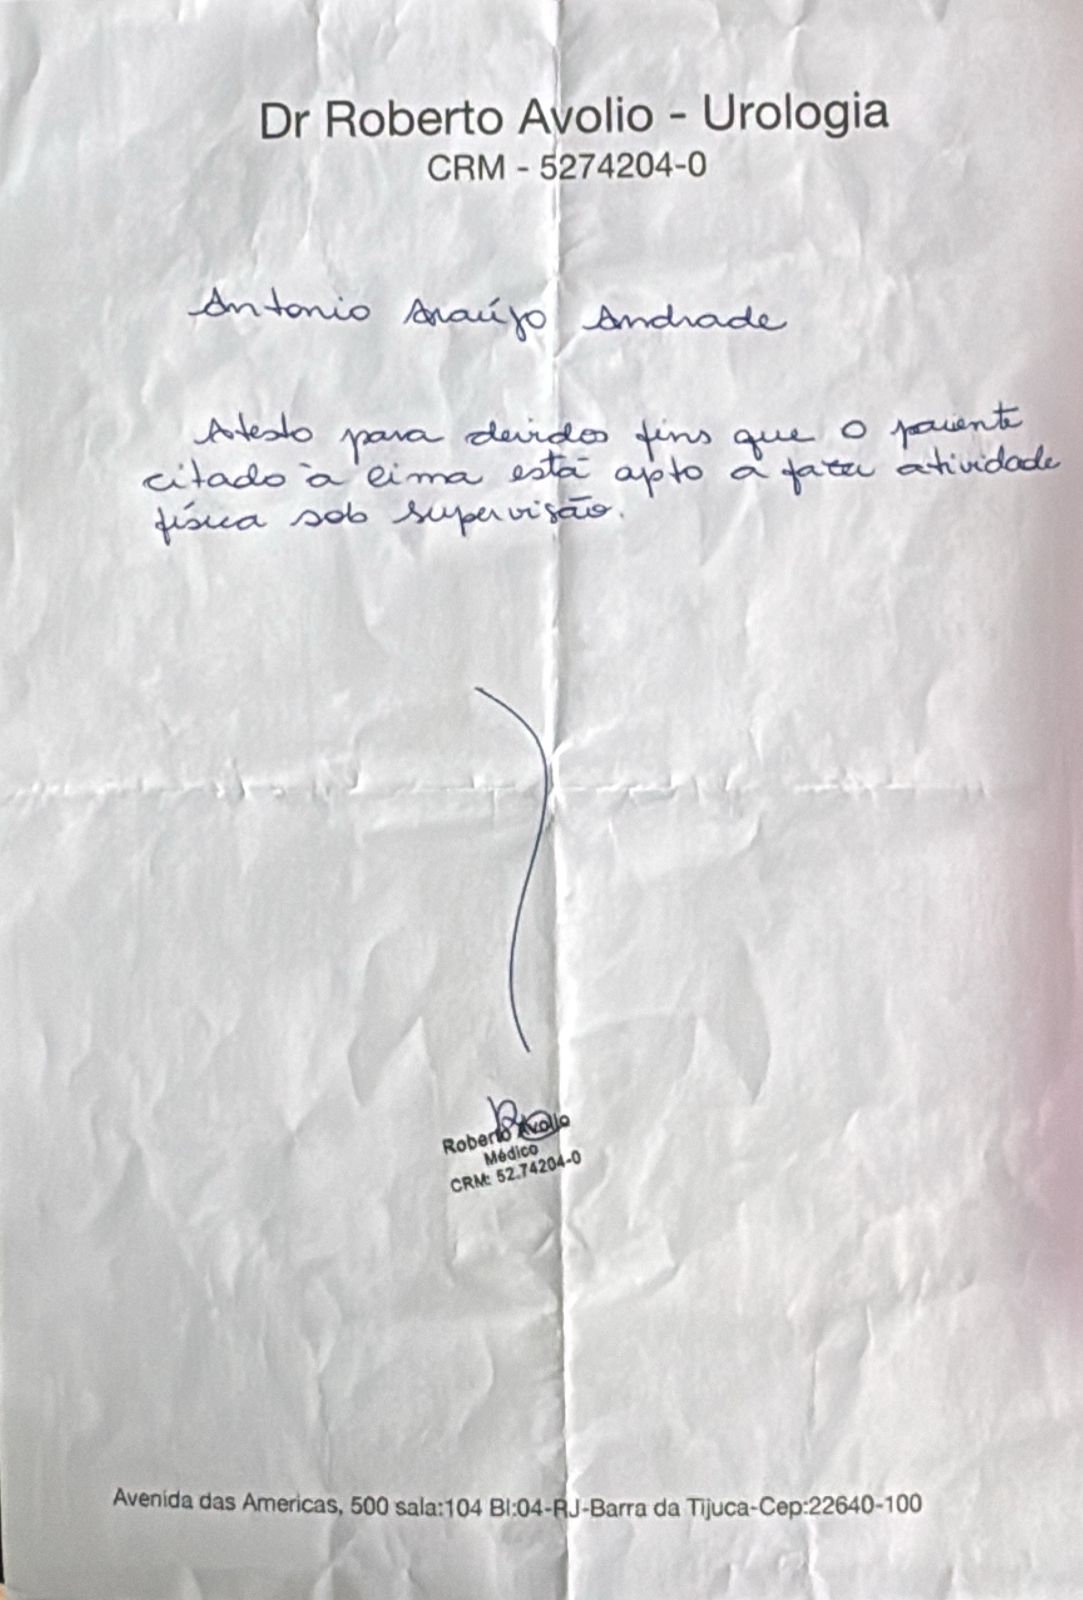 Dr Roberto Avolio - Urologia
CRM - 5274204-0
Antonio Araújo Andrade
Atesto para devidos fins que o paciente
citado à cima está apto a fazer atividade
física sob supervisão.
Roberto Avolio
Médico
CRM: 52.74204-0
Avenida das Americas, 500 sala:104 Bl:04-RJ-Barra da Tijuca-Cep:22640-100